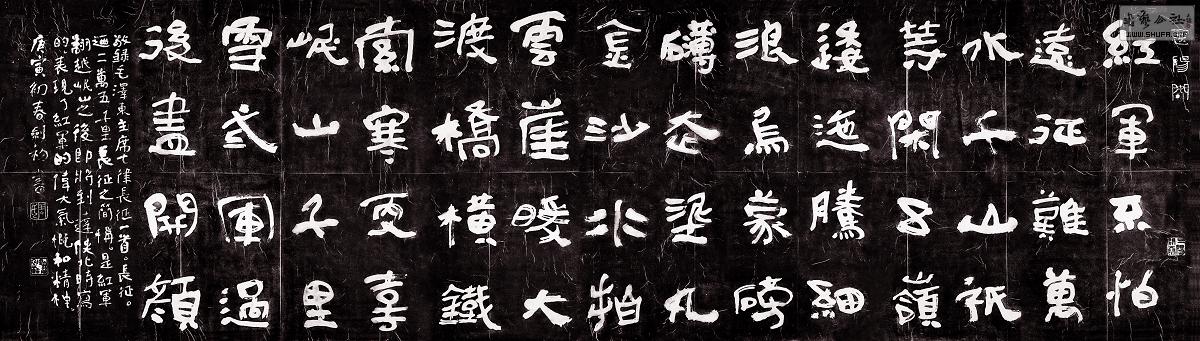 紅軍不怕
遠征難萬
水千山祇
等閑五嶺
逶迤騰細
浪烏蒙磅
礴走埿丸
金沙水拍
雲崖暖大
渡橋橫鐵
索寒更喜
岷山千里
雪弎軍過
後盡開顏
敬錄毛澤東主席七律長征一首。長征。
迺二萬五千里長征之簡稱。是紅軍
翻越岷山之後即將到達陝北時寫
的表現了紅軍的偉大氣慨和精神。
庚寅初春劍初書